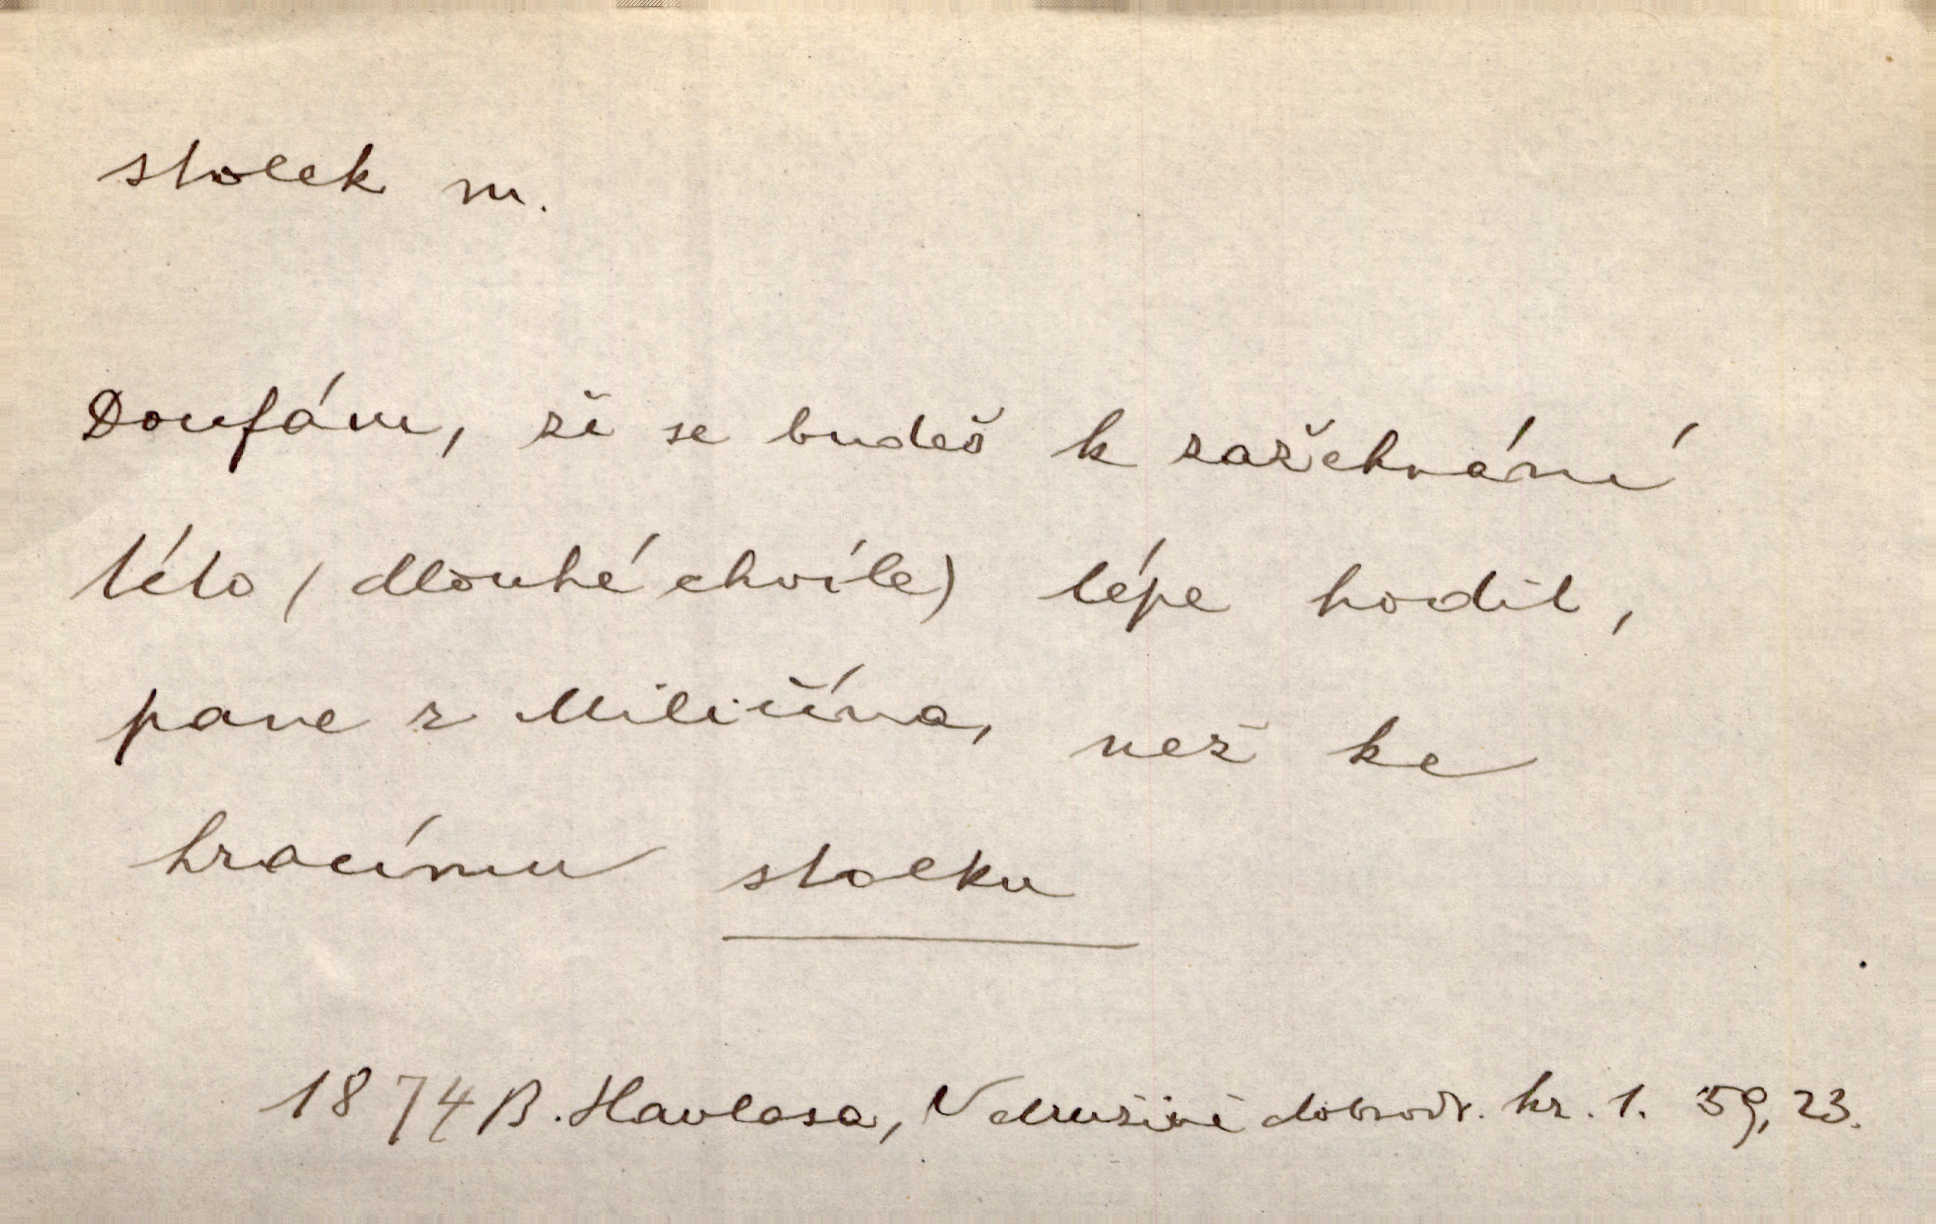 stolek m.
Doufám, že se budeš k zažehnání
této (dlouhé chvíle) lépe hodit,
pane z Miličína, než ke
hracímu stolku
1874 B. Havlasa, V družině dobrodr. kr. 1. 59, 23.